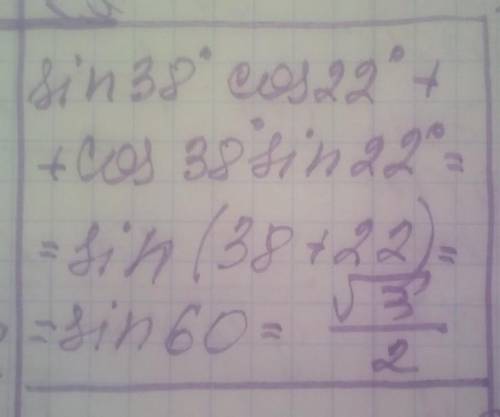 sin38° cos22° +
+cos 38° sin22° =
=sin(38+22)=
=sin60= √3/2